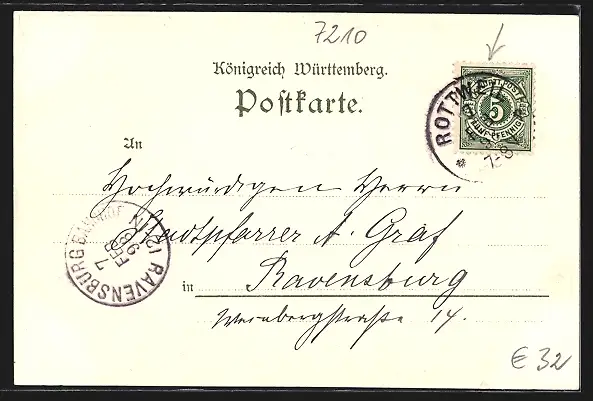 7210
Königreich Württemberg.
Postkarte.
ROTTWEIL
7-8
5
FÜNF PFENNIG
An
Hochwürdigen Herrn
Stadtpfarrer A. Graf
in Ravensburg
Weinbergstraße 14.
RAVENSBURG BAHNHOF
7
FEB
98
12
€ 32